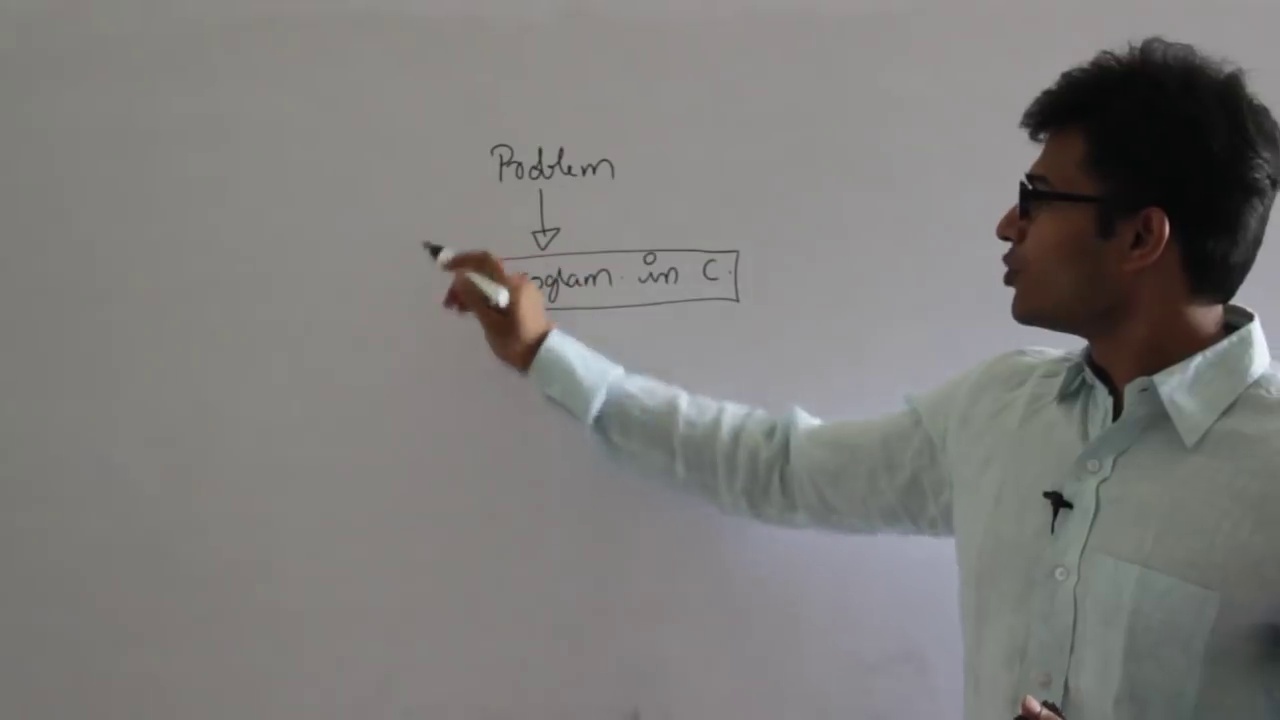 Problem
Program in C.